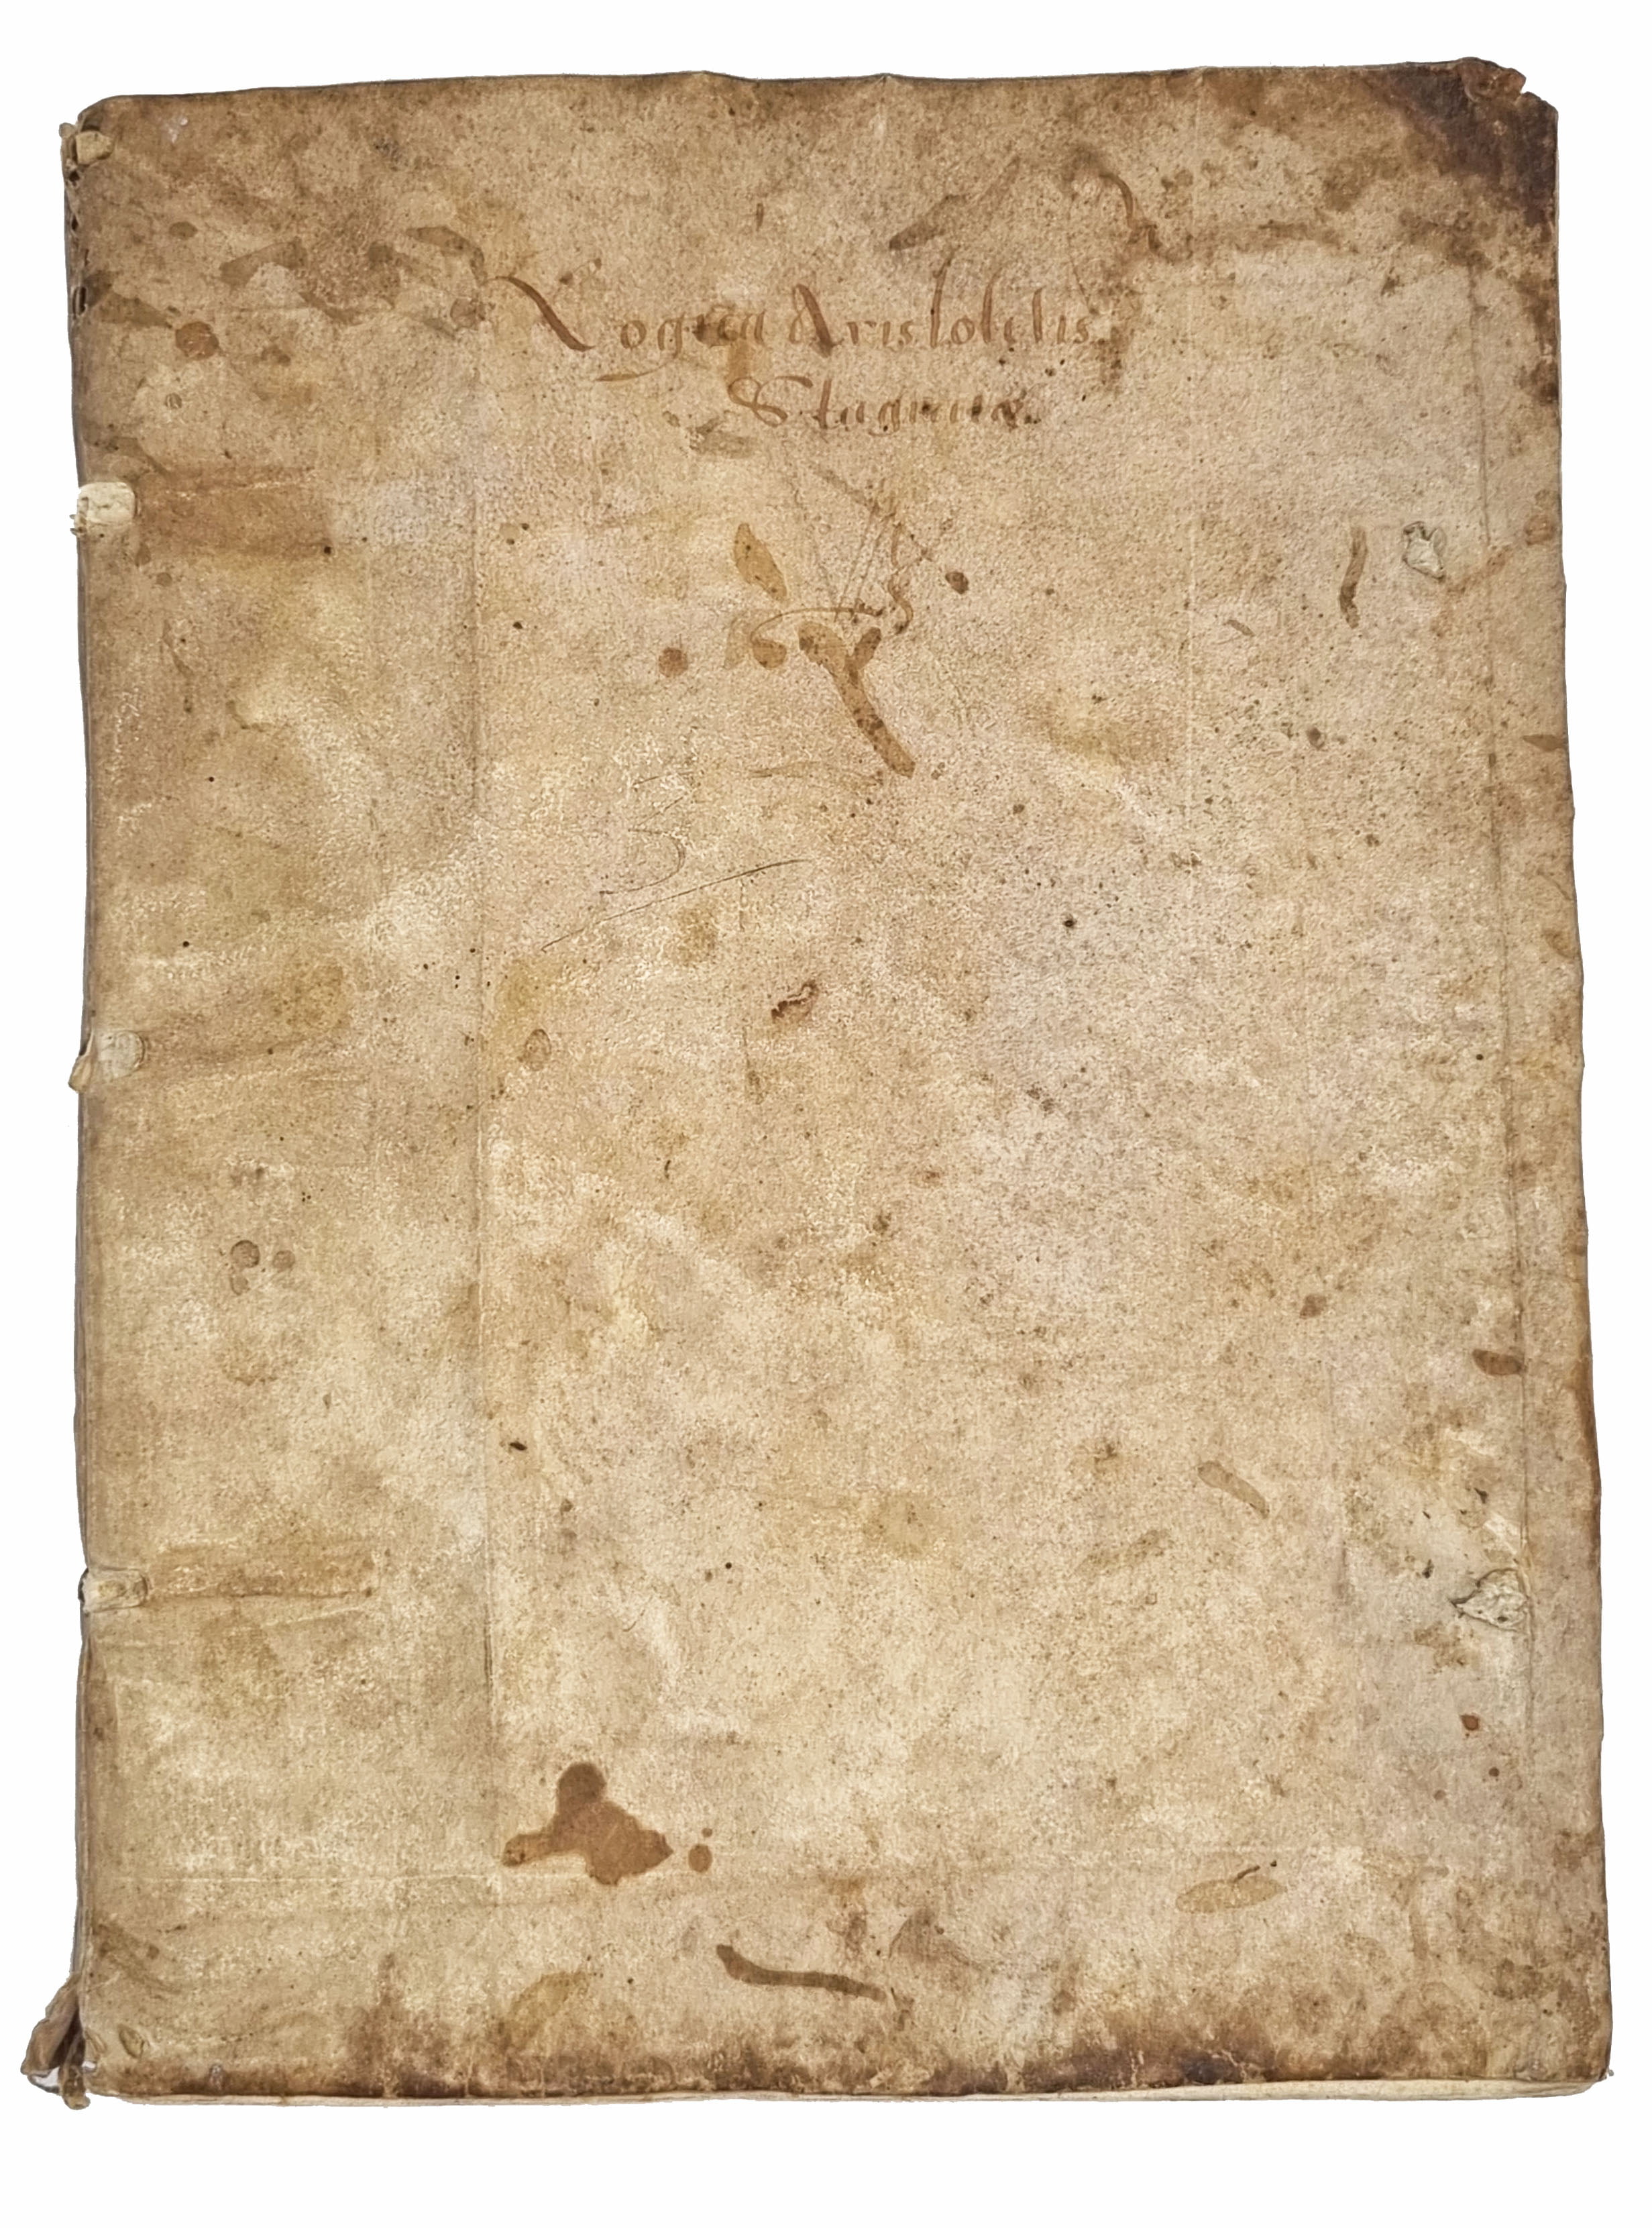 Logica Aristotelis
Stagiritæ